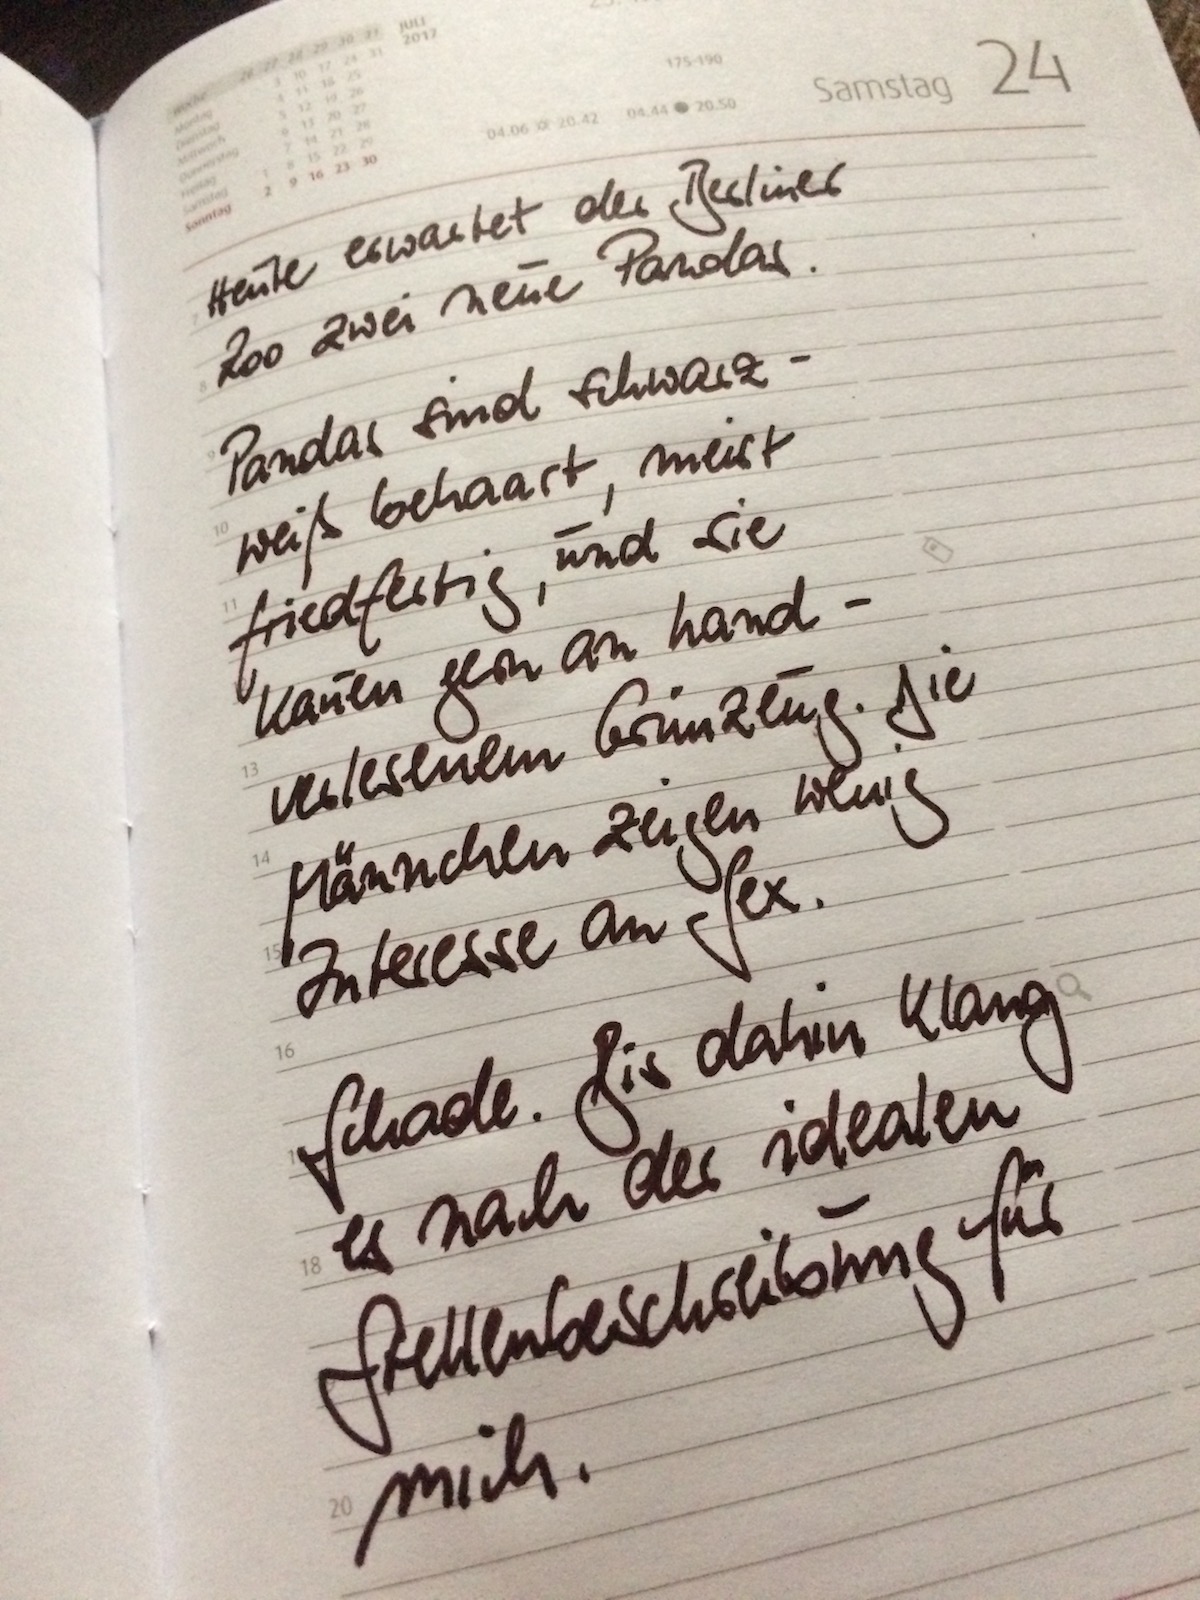 JULI
2017
Woche 26 27 28 29 30 31
Montag 3 10 17 24 31
Dienstag 4 11 18 25
Mittwoch 5 12 19 26
Donnerstag 6 13 20 27
Freitag 7 14 21 28
Samstag 1 8 15 22 29
Sonntag 2 9 16 23 30
175-190
04.06 20.42 04.44 20.50
Samstag 24
Heute erwartet der Berliner
Zoo zwei neue Pandas.
Pandas sind schwarz-
weiß behaart, meist
friedfertig, und sie
kauen gern an hand-
verlesenem Grünzeug. Die
Männchen zeigen wenig
Interesse an Sex.
Schade. Bis dahin klang
es nach der idealen
Stellenbeschreibung für
mich.
7
8
9
10
11
13
14
15
16
18
20